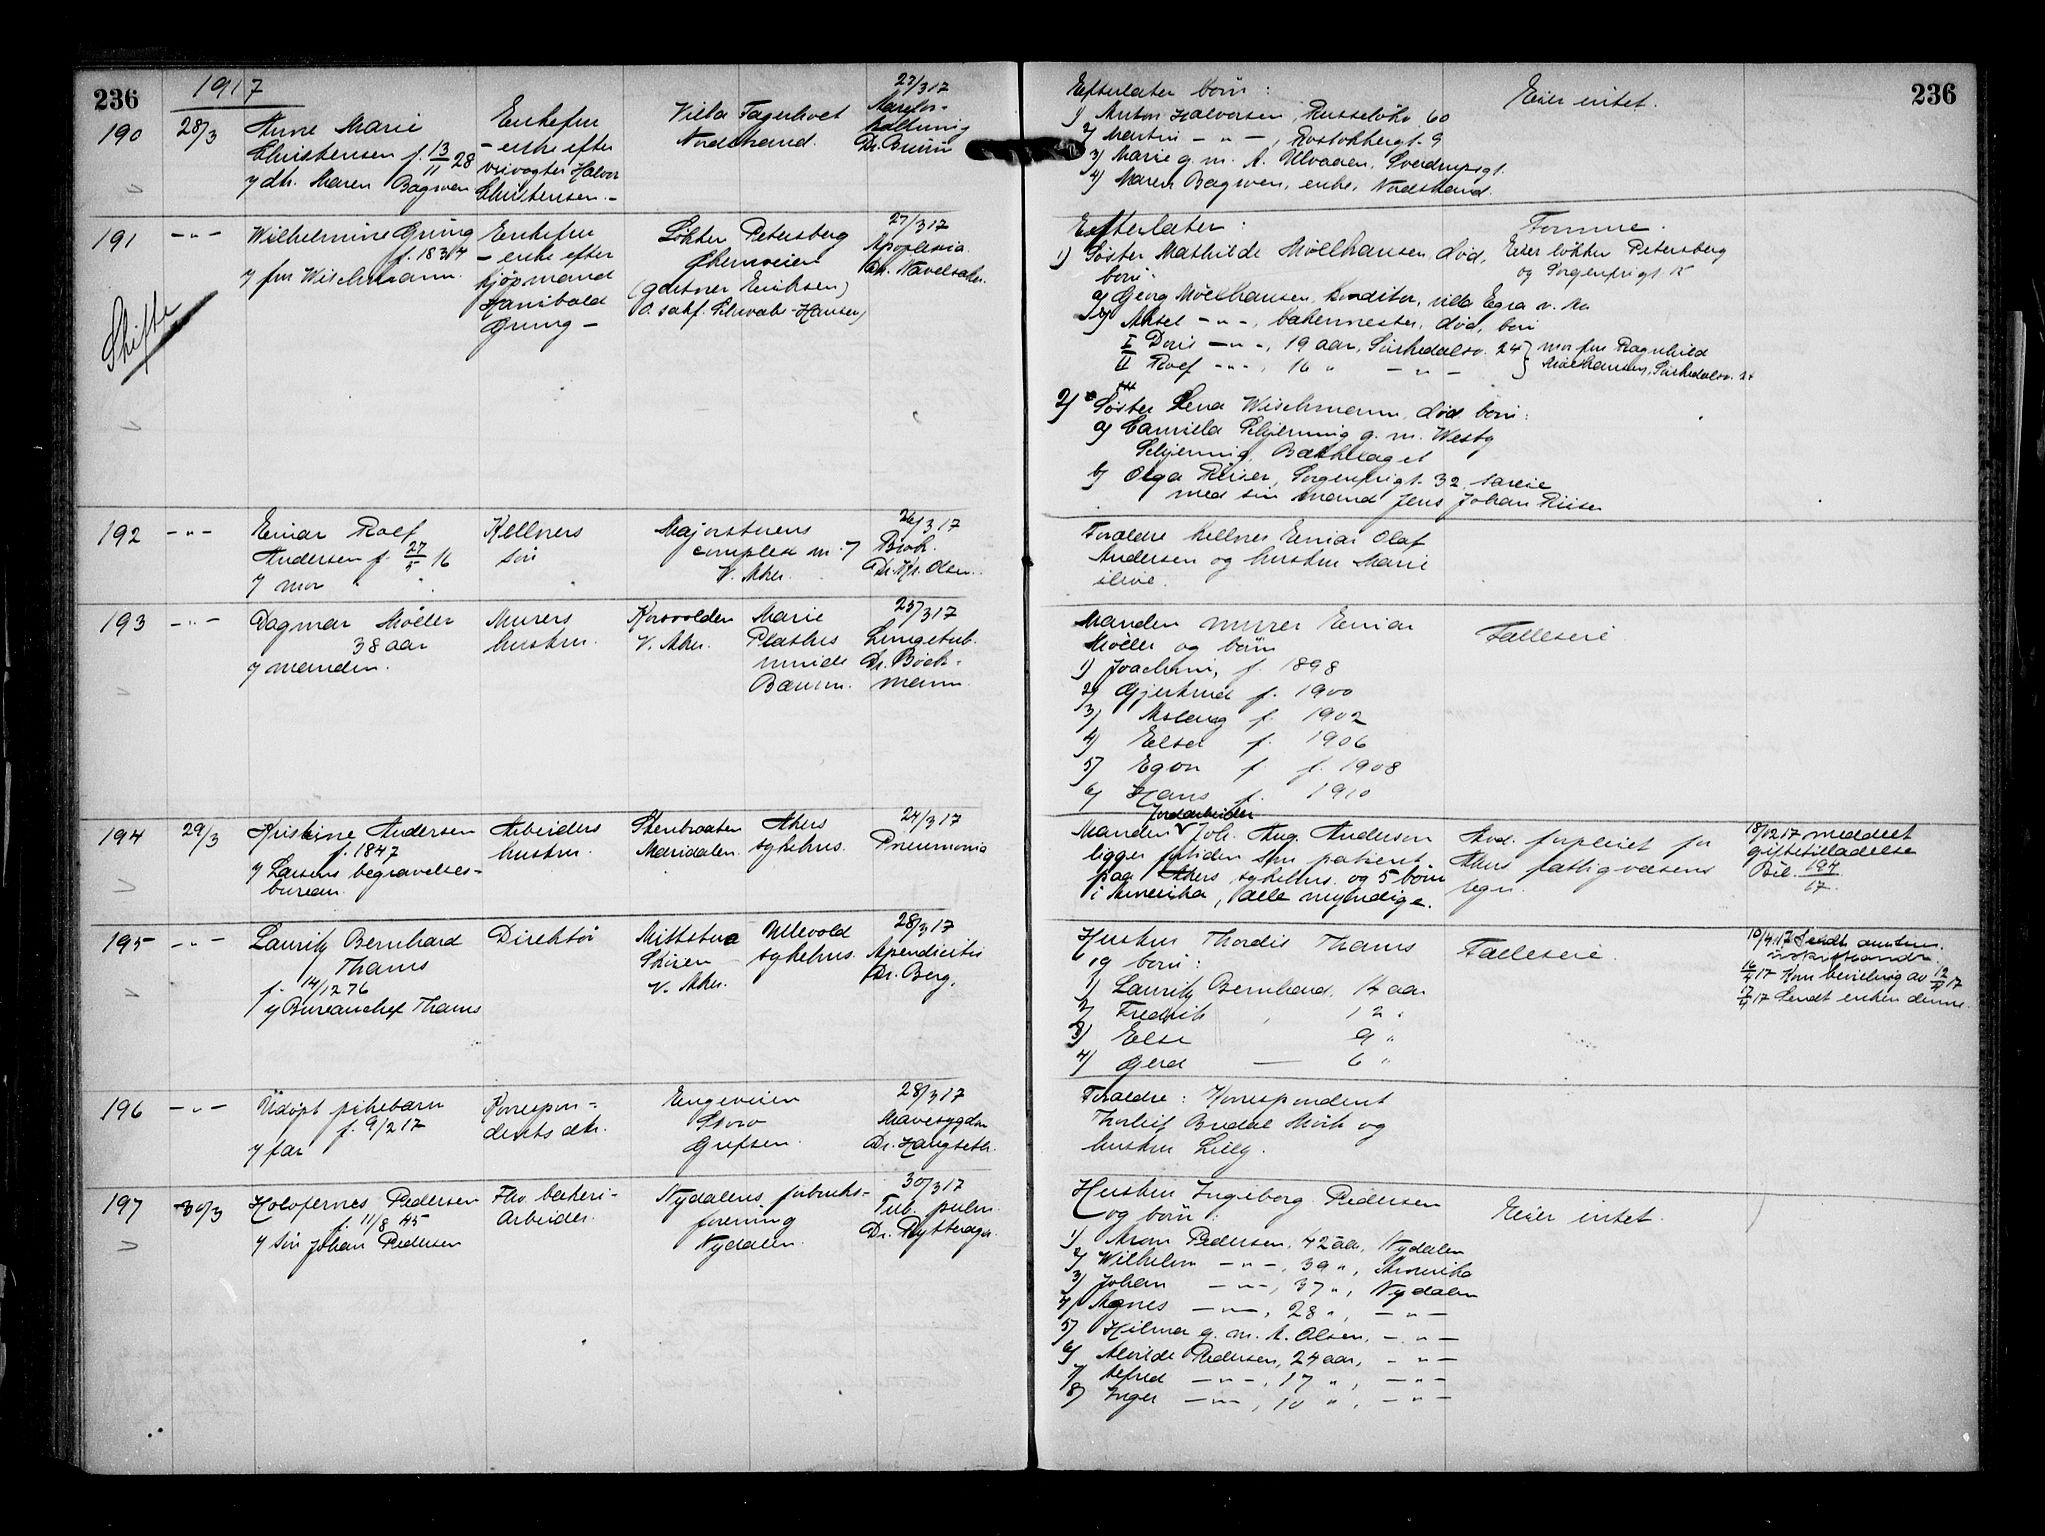 236
1917
190
28/3
Anne Marie
Christensen f. 13/11 28
v/ dtr. Maren Bagsven
Enkefru
- enke efter
veivogter Halvor
Christensen. -
Villa Fagerhvet
Nordstrand.
27/3 17
Dr. Bruun
Efterlater børn:
1) Anton Halvorsen, Russeløkv. 60
2) Martin - " -, Rostokbergt. 9
3) Marie g. m. A. Ulvaaen, Sverdrupsgt.
4) Maren Bagsven, enke, Nordstrand.
Eier intet.
236
191
- " -
Wilhelmine Grung
f. 1834
v/ fru Wischmann.
Skifte
Enkefru
- enke efter
kjøpmand
Hanibald
Grung -
Løkken Petersberg
Akersveien
(gartner Eriksen)
O. sakf. Schwab-Hansen)
27/3 17
Apoplexia
Efterlater:
1) Søster Mathilde Møllhausen, død,
børn:
a) Georg Møllhausen, konditor, villa Egra v. Aa
b) Aksel - " -, bakermester, død, børn
I Doris - " -, 19 aar, Sørkedalsv. 24 } mor fru Ragnhild
II Rolf - " -, 16 " - " - } Møllhausen, Sørkedalsv. 24
2) Søster Lena Wischmann, død, børn:
a) Camilla Schjerning g. m. Westy
Schjerning, Bækkelaget
b) Olga Riiser, Sorgenfrigt. 32, særeie
med sin mand Jens Johan Riiser
Formue.
Eier løkken Petersberg
og Sorgenfrigt. 15
192
- " -
Einar Rolf
Andersen f. 27/5 16
v/ mor
Kellners
søn
Majorstuens
complex m. 7
V. Aker.
26/3 17
Bronk.
Dr. Kr. Olsen.
Forældre kellner Einar Olaf
Andersen og hustru Marie
ilive.
193
- " -
Dagmar Møller
38 aar
v/ manden.
Murers
hustru.
Korsvolden
V. Aker.
Marie
Plathes
minde
Bærum.
25/3 17
Lungetub.
Dr. Boch-
mann.
Manden murer Einar
Møller og børn
1) Joachim, f. 1898
2) Gjertrud f. 1900
3) Aslaug f. 1902
4) Elsa f. 1906
5) Egon f. f. 1908
6) Hans f. 1910
Fælleseie
194
29/3
Kristine Andersen
f. 1847
v/ Larsens begravelses-
bureau.
Arbeiders
hustru.
Stenbraaten
Maridalen.
Akers
sykehus.
24/3 17
Pneumonia
Jordarbeider
Manden Joh. Aug. Anderson
ligger fortiden som patient
paa Akers sykehus. og 5 børn
i Amerika, alle myndige.
Avd. forpleiet for
Akers fattigvæsens
regn.
18/12 17 meddelt
giftetilladelse
Bil. 194/17.
195
- " -
Lauritz Bernhard
Thams
f. 14/12 76
v/ Bureauchef Thams
Direktør
Mittstua
Skøien
V. Aker.
Ullevold
sykehus.
28/3 17
Apendicitis
Dr. Berg.
Hustru Thordis Thams
og børn:
1) Lauritz Bernhard, 14 aar
2) Fredrik, 12 "
3) Else 9 "
4) Gerd — 6 "
Fælleseie.
10/4 17 Sendt amtm.
16/4 17 Kom bevilling av 12/4 17
17/4 17 Sendt enken denne.
196
- " -
Udøpt pikebarn
f. 9/2 17
v/ far
Korrespon-
dents dtr.
Engveien
Storo
Grefsen.
28/3 17
Mavesygdom
Dr. Haugseth.
Forældre: Korrespondent
Thorleif Bredal Mørk og
hustru Lilly.
197
30/3
Holofernes Pedersen
f. 11/8 45
v/ søn Johan Pedersen
Fhv. bakeri-
arbeider.
Nydalens forbruks-
forening
Nydalen.
30/3 17
Tub. pulm.
Dr. Rytterager.
Hustru Ingeborg Pedersen
og børn:
1) Aron Pedersen, 42 aar, Nydalen
2) Wilhelm - " -, 39 ", Amerika
3) Johan - " -, 37 ", Nydalen
4) Agnes - " -, 28 ", - " -
5) Hilma g. m. A. Olsen, - " -
6) Alvilde Pedersen, 24 aar, - " -
7) Alfred - " -, 17 ", - " -
8) Inger - " -, 10 ", - " -
Eier intet.